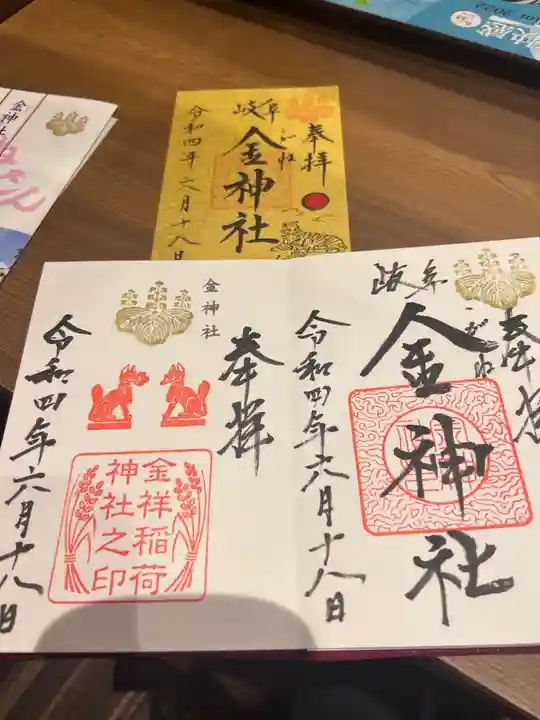 奉拝
岐阜
こがね
金神社
令和四年六月十八日
金神社
岐阜
こがね
金神社
令和四年六月十八日
金神社
奉拝
金祥稲荷
神社之印
令和四年六月十八日